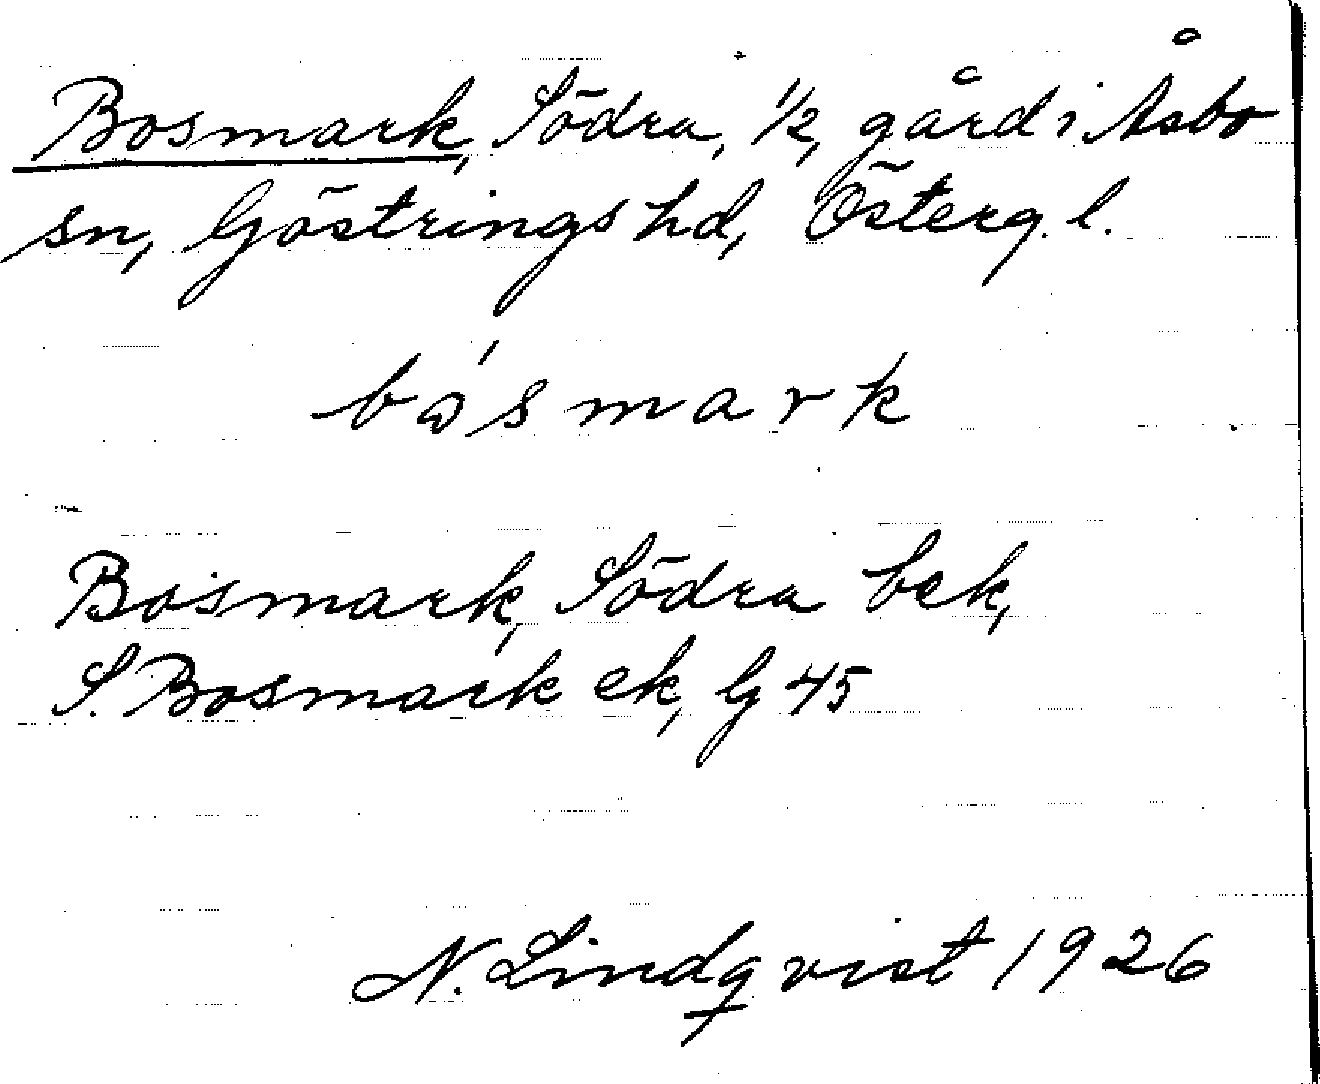 Bosmark, Södra, 1/2, gård i Åsbo
sn, Göstrings hd, Österg. l.
bɷ́smark
Bosmark, Södra bek,
S. Bosmark ek, G 45
N. Lindqvist 1926